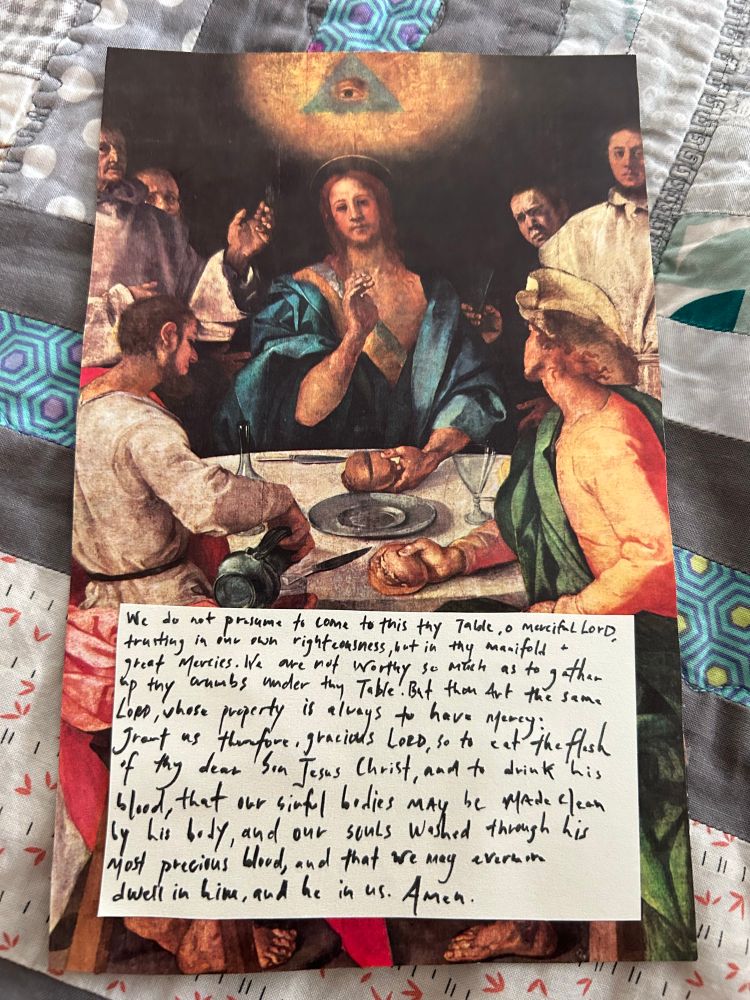 We do not presume to come to this thy Table, o merciful LORD,
trusting in our own righteousness, but in thy manifold +
great Mercies. We are not worthy so much as to gather
up thy crumbs under thy Table. But thou Art the same
LORD, whose property is always to have Mercy:
Grant us therefore, gracious LORD, so to eat the flesh
of thy dear Son Jesus Christ, and to drink his
blood, that our sinful bodies MAY be MADe clean
by his body, and our souls washed through his
Most precious blood, and that we may evermore
dwell in him, and he in us. Amen.